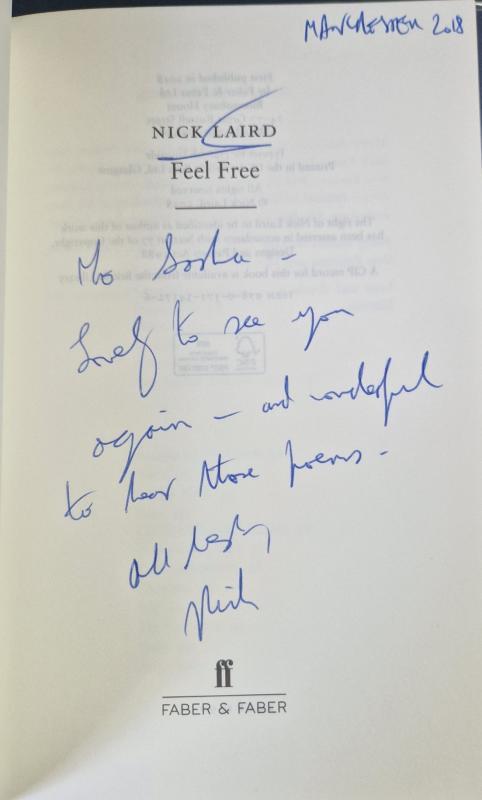 MANCHESTER 2018
NICK LAIRD
Feel Free
To Sasha –
Lovely to see you
again – and wonderful
to hear those poems –
All best,
Nick
ff
FABER & FABER